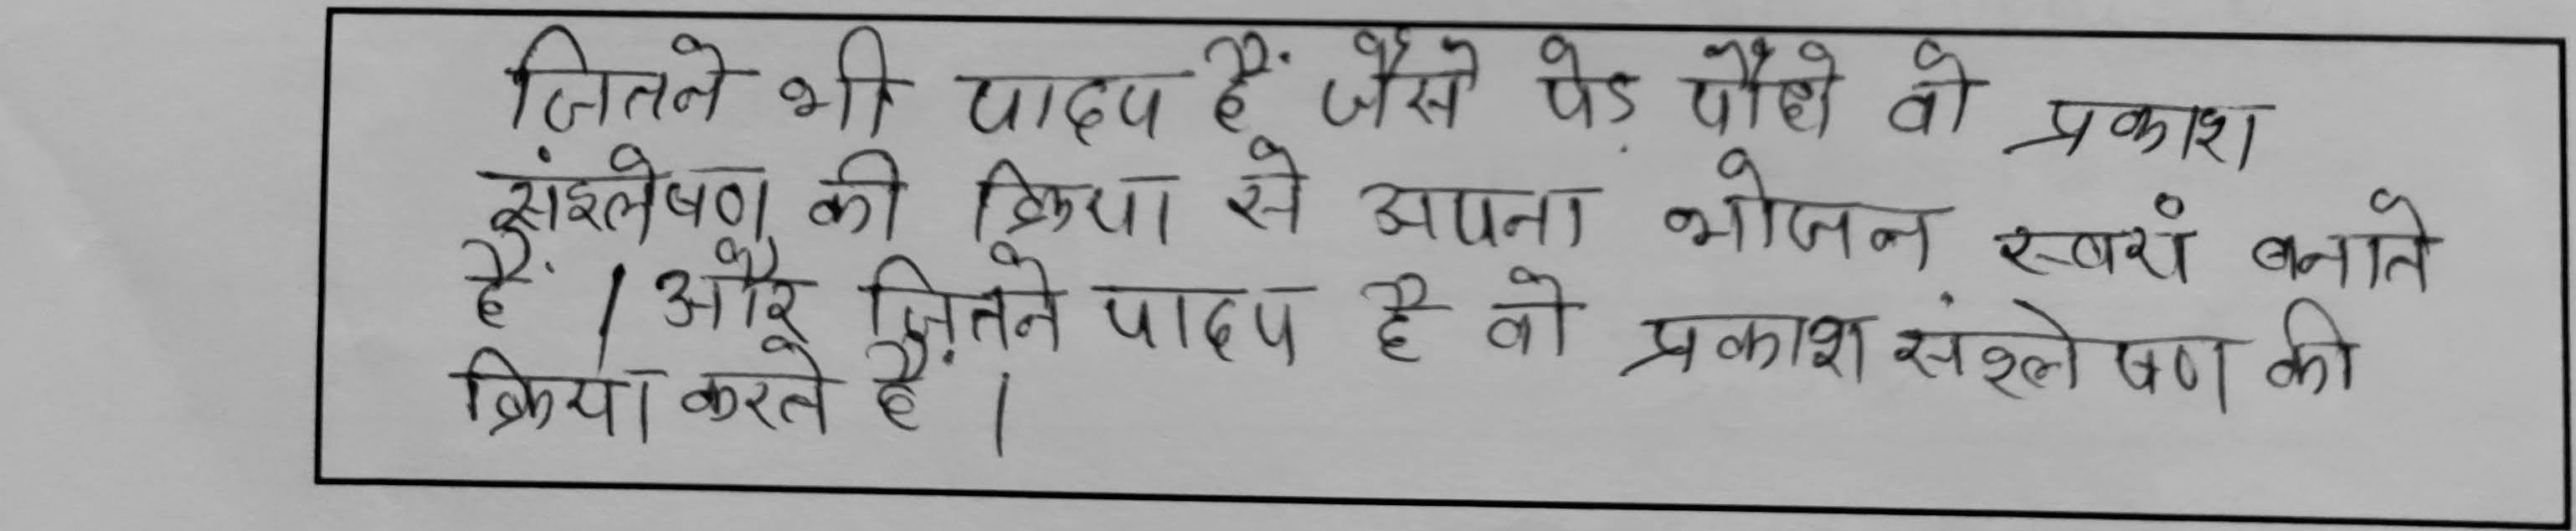 जितने भी पादप हैं जैसे पेड़ पौधे वो प्रकाश
संश्लेषण की क्रिया से अपना भोजन स्वयं बनाते
हैं । और जितने पादप है वो प्रकाश संश्लेषण की
क्रिया करते हैं ।